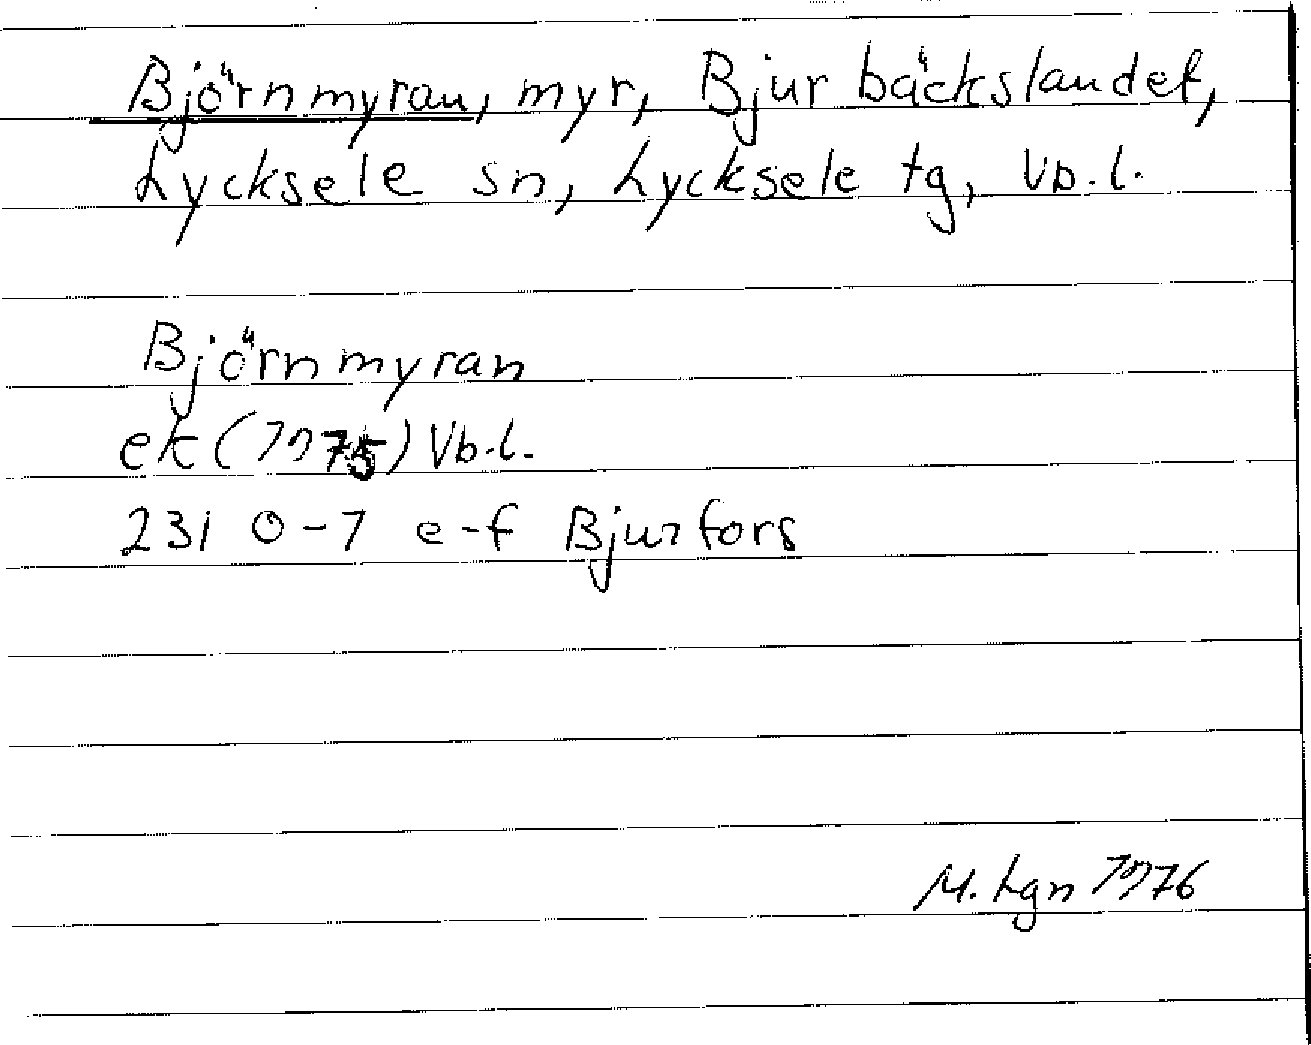 Björnmyran, myr, Bjurbäckslandet,
Lycksele sn, Lycksele tg, Vb.l.
Björnmyran
ek (1975) Vb.l.
23I 0-1 e-f Bjurfors
M. Lgn 1976